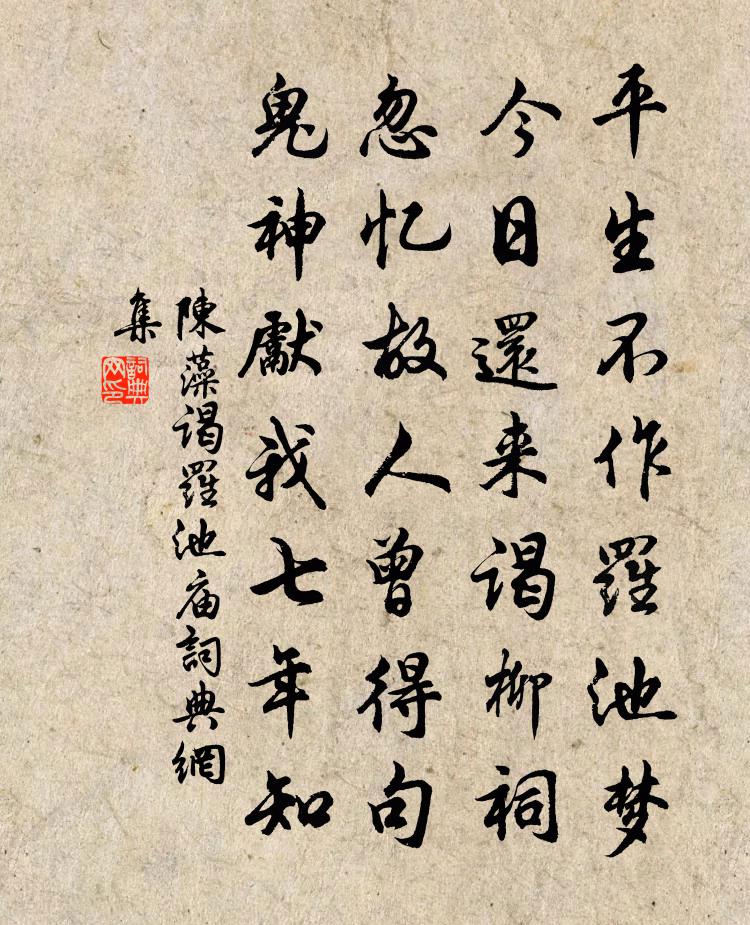 平生不作羅池梦
今日還来谒柳祠
忽忆故人曾得句
鬼神獻我七年知
陳藻谒羅池庙詞典網
集
詞典
网印